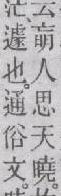 云萌人思天曉。
茫遽也。通俗文。